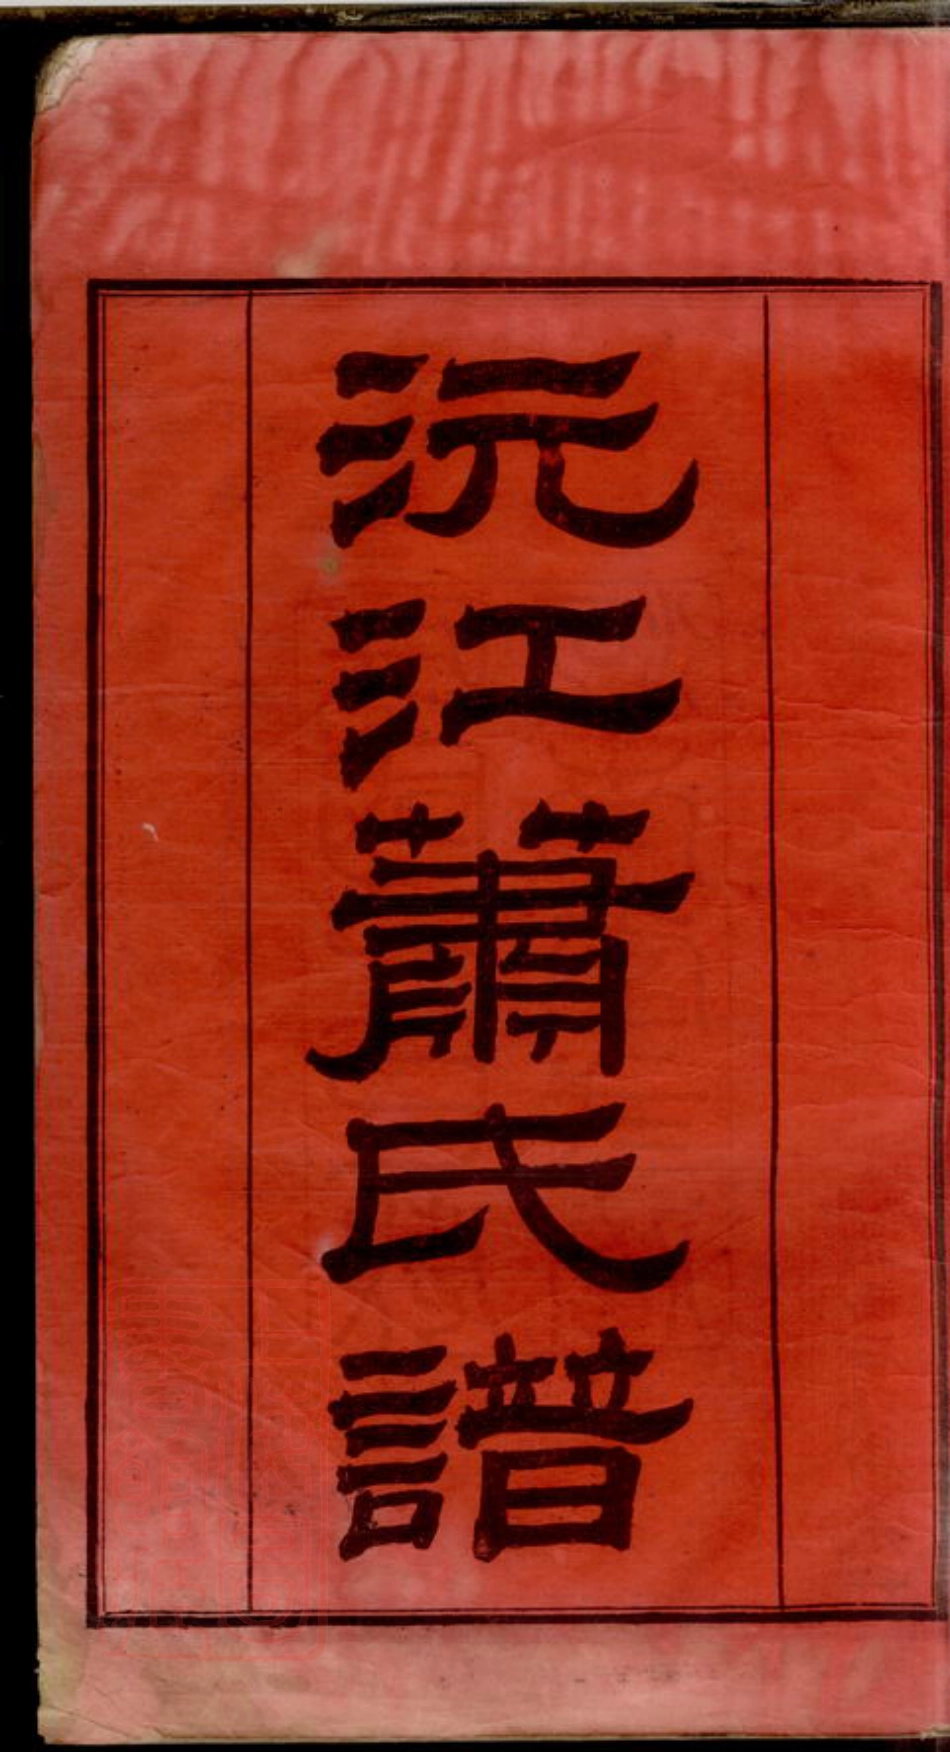 沅江蕭氏譜